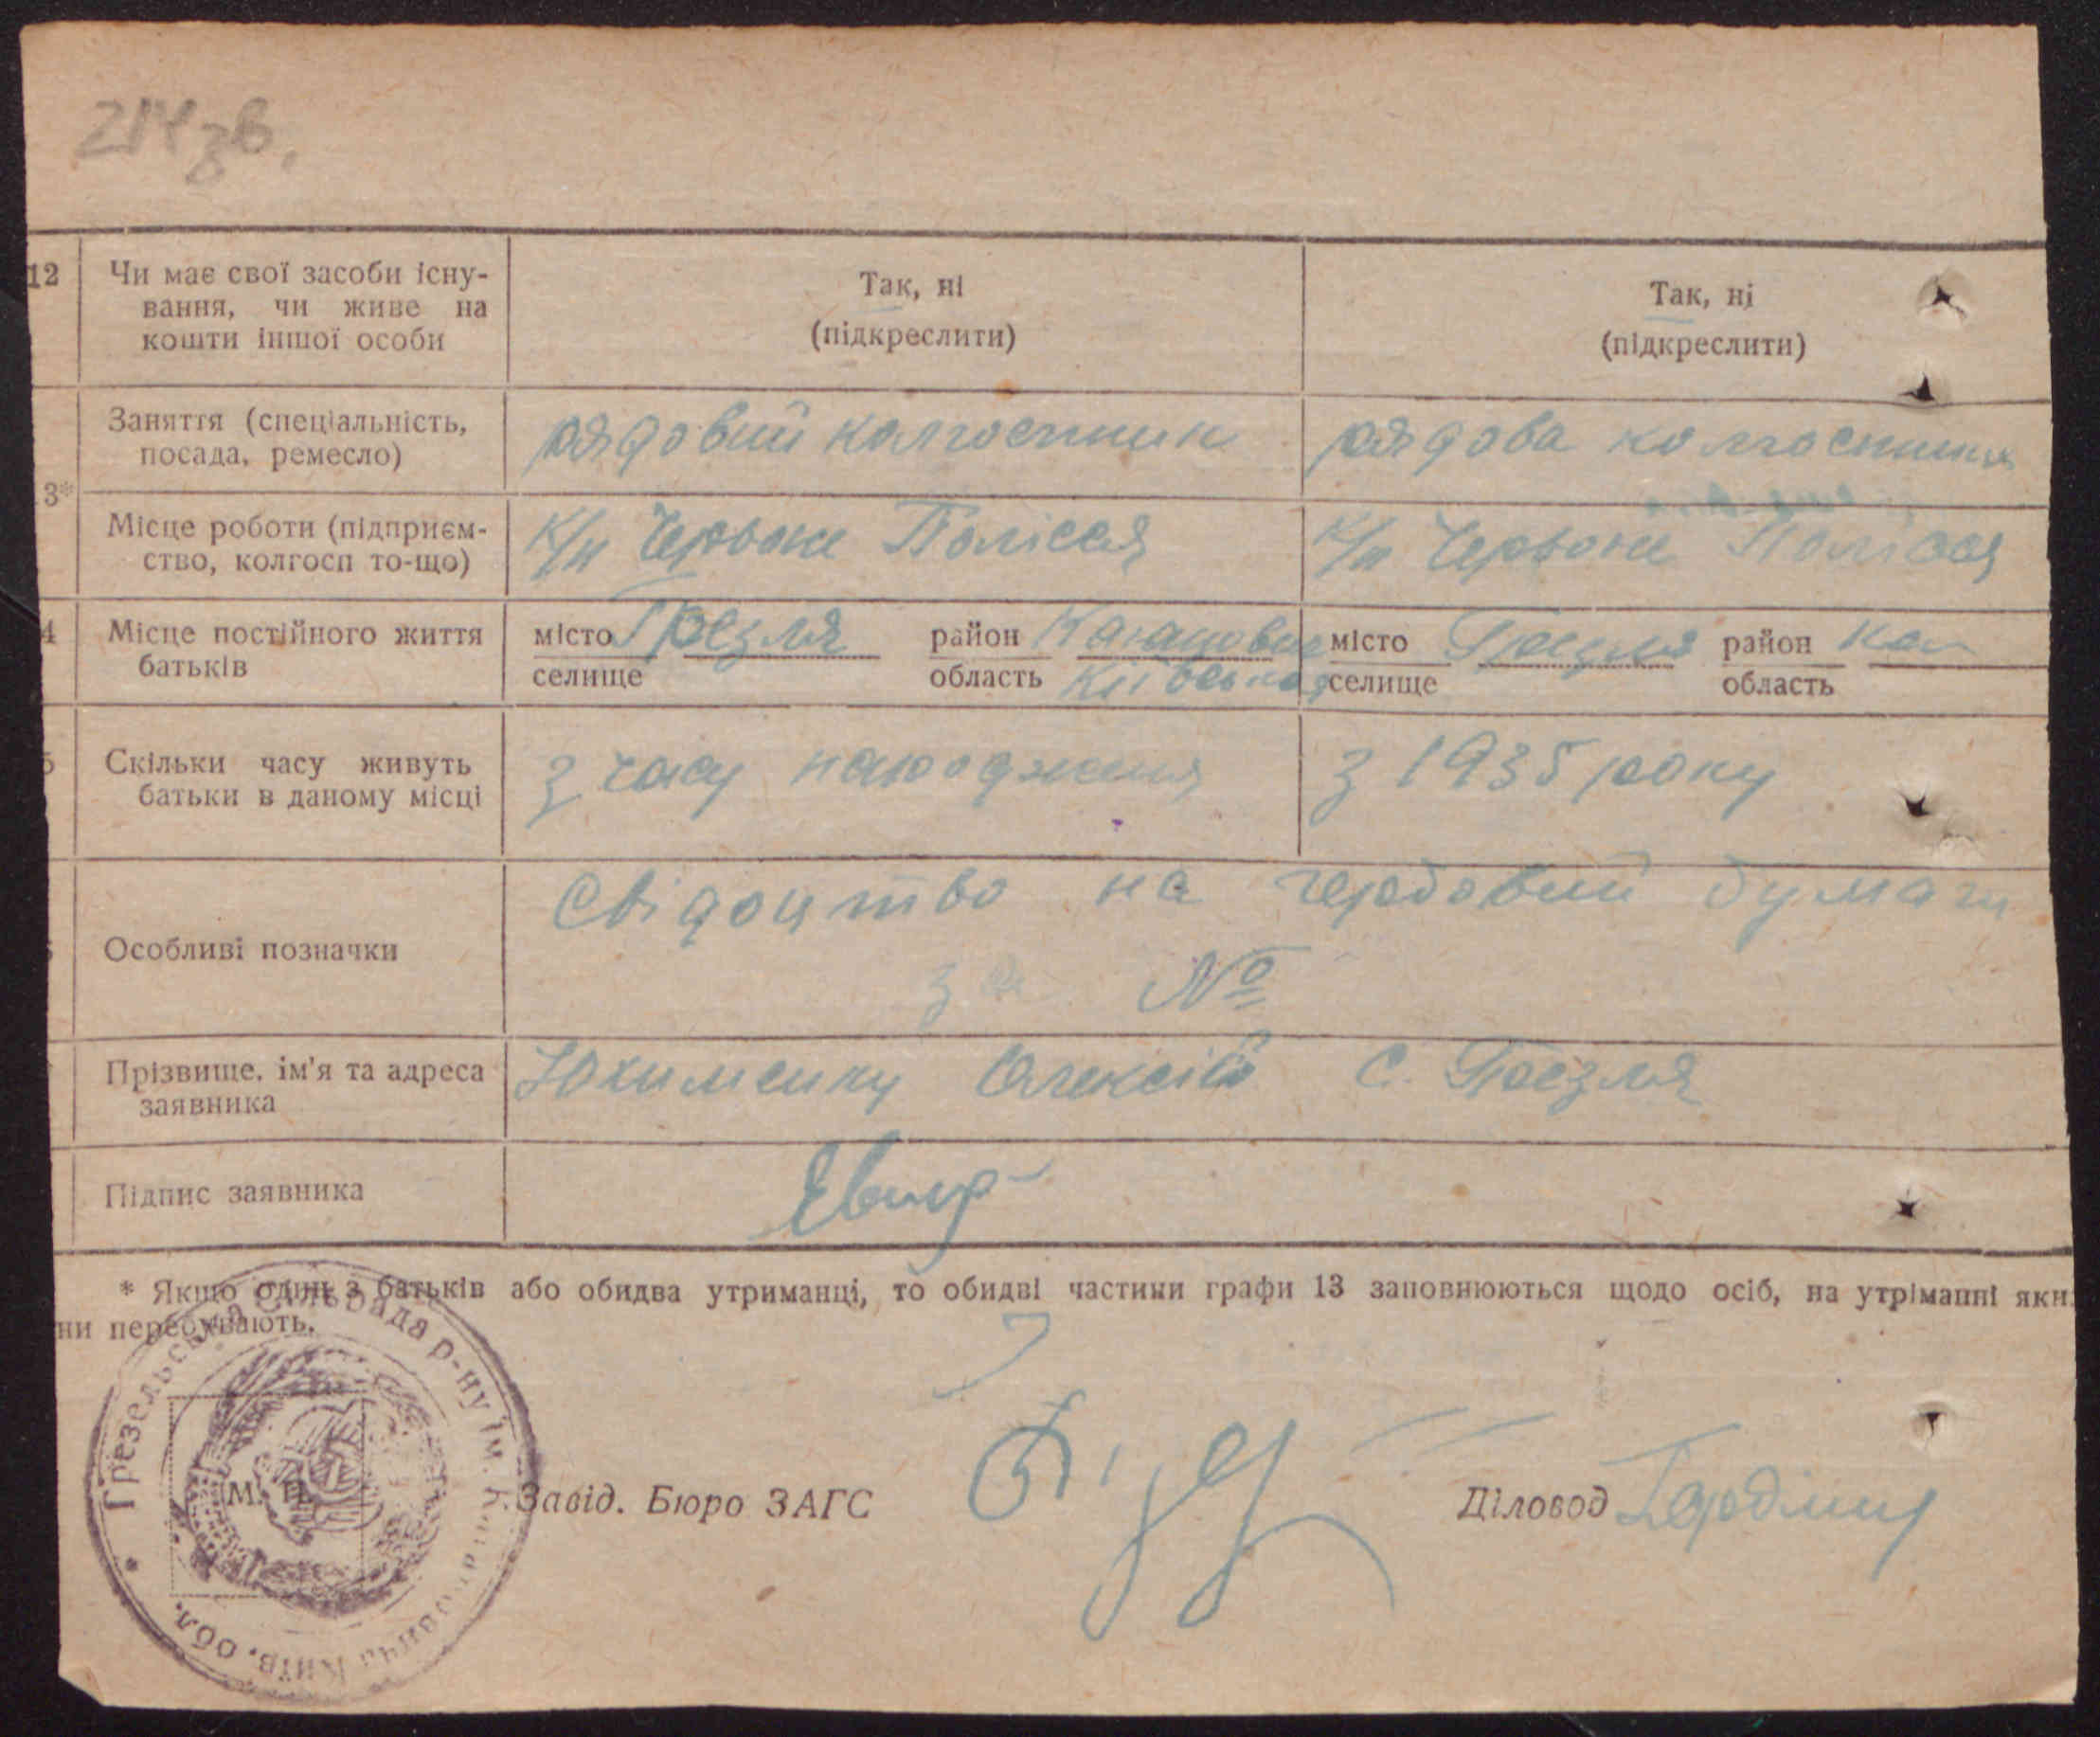 214зв.
12 Чи має свої засоби існу-
вання, чи живе на
кошти іншої особи
Так, ні
(підкреслити)
Так, ні
(підкреслити)
Заняття (спеціальність,
посада, ремесло)
рядовий колгоспник
рядова колгоспниця
3*
Місце роботи (підприєм-
ство, колгосп то-що)
к/п Червоне Полісся
к/п Червоне Полісся
4 Місце постійного життя
батьків
місто Грезля район
селище область Київська
місто Грезля район Каг
селище область
5 Скільки часу живуть
батьки в даному місці
з часу народження
з 1935 року
Особливі позначки
Свідоцтво на гербовий бумаги
за №
Прізвище, ім'я та адреса
заявника
Юхименку Олексій с. Грезля
Підпис заявника
* Якщо один з батьків або обидва утриманці, то обидві частини графи 13 заповнюються щодо осіб, на утріманні яки
ни перебувають.
Грезельська сільрада р-ну ім. Кагановича Київ. обл.
М. П.
Завід. Бюро ЗАГС
Діловод